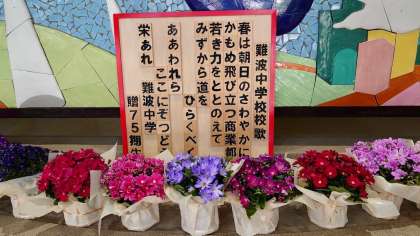 難波中学校校歌
春は朝日のさわやかに
かもめ飛び立つ商業都
若き力をととのえて
みずから道を
ひらくべく
ああわれら
ここにそつど
栄あれ 難波中学
贈75期